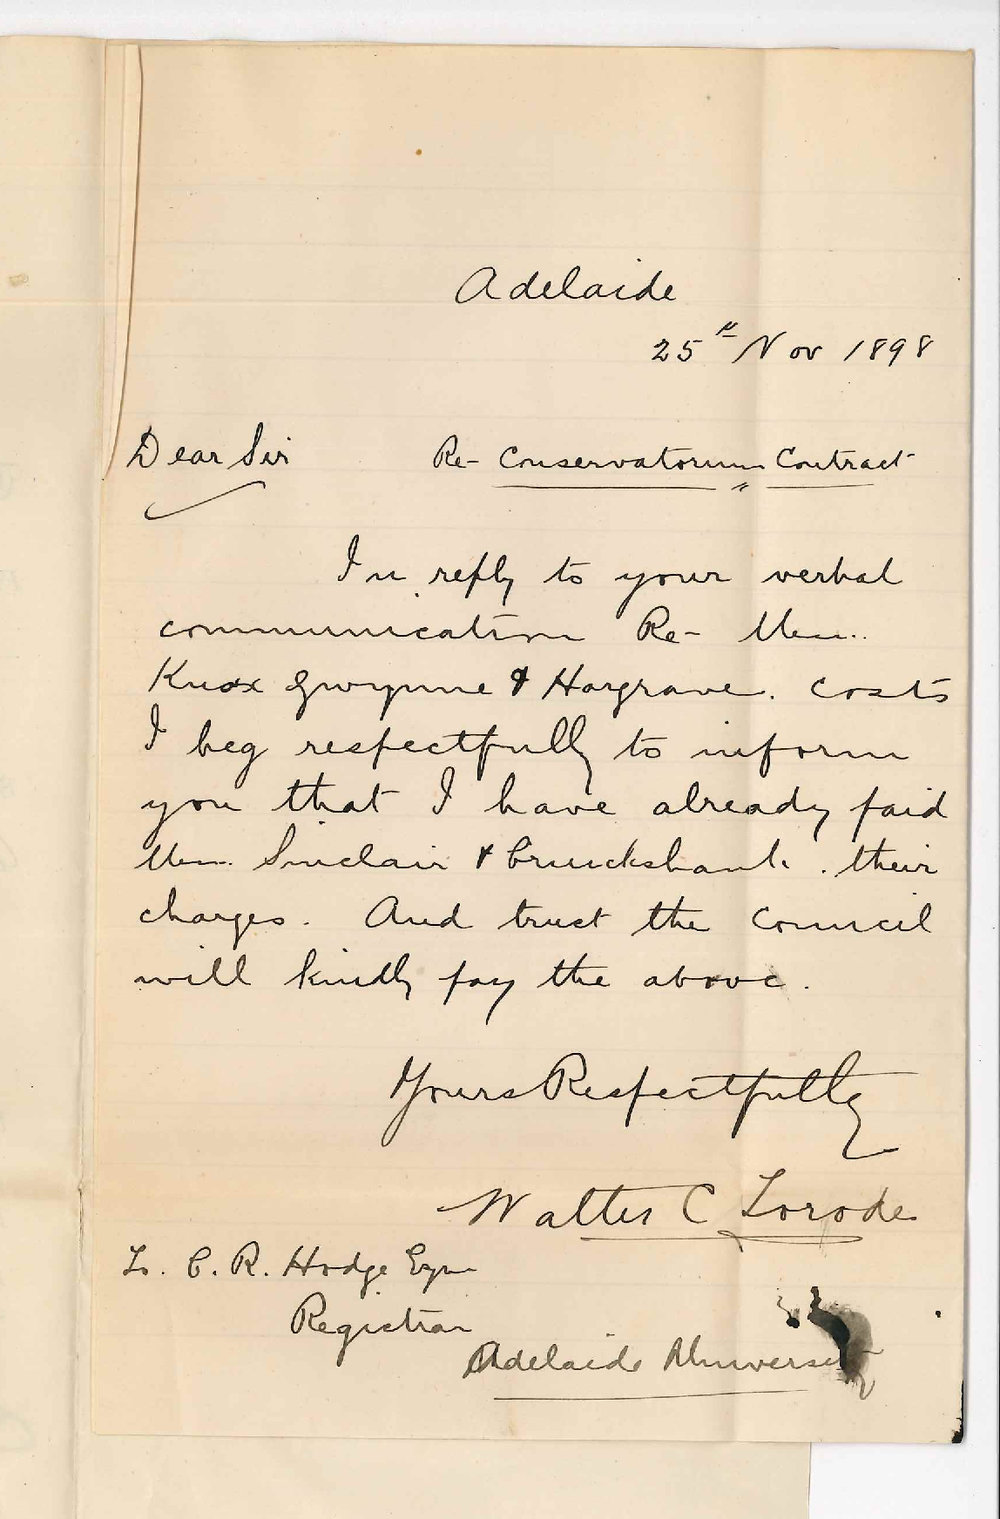 Adelaide
25th Nov 1898
Dear Sir Re- Conservatorium Contract
In reply to your verbal
communication Re- Messrs.
Knox Gwynne & Hargrave. costs
I beg respectfully to inform
you that I have already paid
Messrs. Sinclair & Cruickshank. their
charges. And trust the Council
will kindly pay the above.
Yours Respectfully
Walter C Torode
To. C. R. Hodge Esqre
Registrar
Adelaide University